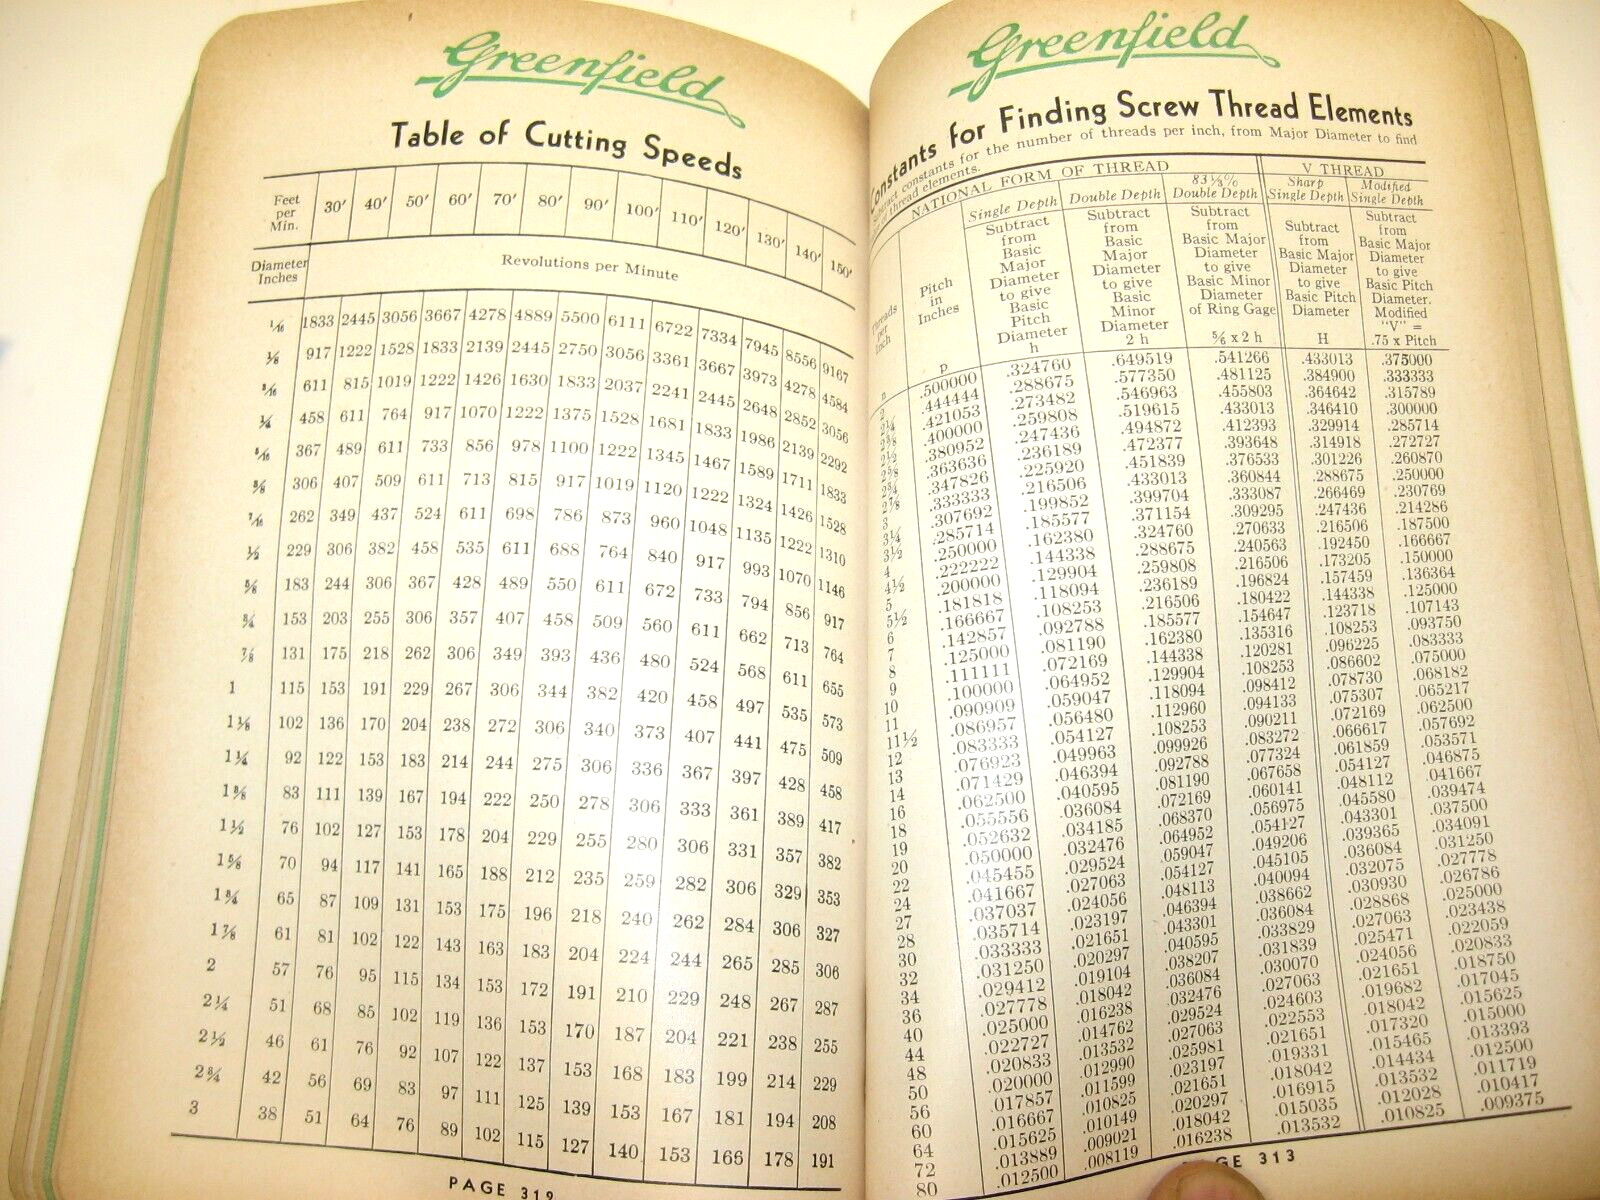 Greenfield
Table of Cutting Speeds
Feet per Min. 30′ 40′ 50′ 60′ 70′ 80′ 90′ 100′ 110′ 120′ 130′ 140′ 150′
Diameter Inches Revolutions per Minute
1/16 1833 2445 3056 3667 4278 4889 5500 6111 6722 7334 7945 8556 9167
1/8 917 1222 1528 1833 2139 2445 2750 3056 3361 3667 3973 4278 4584
3/16 611 815 1019 1222 1426 1630 1833 2037 2241 2445 2648 2852 3056
1/4 458 611 764 917 1070 1222 1375 1528 1681 1833 1986 2139 2292
5/16 367 489 611 733 856 978 1100 1222 1345 1467 1589 1711 1833
3/8 306 407 509 611 713 815 917 1019 1120 1222 1324 1426 1528
7/16 262 349 437 524 611 698 786 873 960 1048 1135 1222 1310
1/2 229 306 382 458 535 611 688 764 840 917 993 1070 1146
5/8 183 244 306 367 428 489 550 611 672 733 794 856 917
3/4 153 203 255 306 357 407 458 509 560 611 662 713 764
7/8 131 175 218 262 306 349 393 436 480 524 568 611 655
1 115 153 191 229 267 306 344 382 420 458 497 535 573
1 1/8 102 136 170 204 238 272 306 340 373 407 441 475 509
1 1/4 92 122 153 183 214 244 275 306 336 367 397 428 458
1 3/8 83 111 139 167 194 222 250 278 306 333 361 389 417
1 1/2 76 102 127 153 178 204 229 255 280 306 331 357 382
1 5/8 70 94 117 141 165 188 212 235 259 282 306 329 353
1 3/4 65 87 109 131 153 175 196 218 240 262 284 306 327
1 7/8 61 81 102 122 143 163 183 204 224 244 265 285 306
2 57 76 95 115 134 153 172 191 210 229 248 267 287
2 1/4 51 68 85 102 119 136 153 170 187 204 221 238 255
2 1/2 46 61 76 92 107 122 137 153 168 183 199 214 229
2 3/4 42 56 69 83 97 111 125 139 153 167 181 194 208
3 38 51 64 76 89 102 115 127 140 153 166 178 191
PAGE 312
Greenfield
Constants for Finding Screw Thread Elements
Subtract constants for the number of threads per inch, from Major Diameter to find
thread elements.
NATIONAL FORM OF THREAD V THREAD
Single Depth Double Depth 83 1/3% Double Depth Sharp Single Depth Modified Single Depth
Threads per Inch
Pitch in Inches
Subtract from Basic Major Diameter to give Basic Pitch Diameter
Subtract from Basic Major Diameter to give Basic Minor Diameter
Subtract from Basic Major Diameter to give Basic Minor Diameter of Ring Gage
Subtract from Basic Major Diameter to give Basic Pitch Diameter
Subtract from Basic Major Diameter to give Basic Pitch Diameter. Modified "V" =
n p h 2 h 5/6 x 2 h H .75 x Pitch
2 .500000 .324760 .649519 .541266 .433013 .375000
2 1/4 .444444 .288675 .577350 .481125 .384900 .333333
2 3/8 .421053 .273482 .546963 .455803 .364642 .315789
2 1/2 .400000 .259808 .519615 .433013 .346410 .300000
2 5/8 .380952 .247436 .494872 .412393 .329914 .285714
2 3/4 .363636 .236189 .472377 .393648 .314918 .272727
2 7/8 .347826 .225920 .451839 .376533 .301226 .260870
3 .333333 .216506 .433013 .360844 .288675 .250000
3 1/4 .307692 .199852 .399704 .333087 .266469 .230769
3 1/2 .285714 .185577 .371154 .309295 .247436 .214286
4 .250000 .162380 .324760 .270633 .216506 .187500
4 1/2 .222222 .144338 .288675 .240563 .192450 .166667
5 .200000 .129904 .259808 .216506 .173205 .150000
5 1/2 .181818 .118094 .236189 .196824 .157459 .136364
6 .166667 .108253 .216506 .180422 .144338 .125000
7 .142857 .092788 .185577 .154647 .123718 .107143
8 .125000 .081190 .162380 .135316 .108253 .093750
9 .111111 .072169 .144338 .120281 .096225 .083333
10 .100000 .064952 .129904 .108253 .086602 .075000
11 .090909 .059047 .118094 .098412 .078730 .068182
11 1/2 .086957 .056480 .112960 .094133 .075307 .065217
12 .083333 .054127 .108253 .090211 .072169 .062500
13 .076923 .049963 .099926 .083272 .066617 .057692
14 .071429 .046394 .092788 .077324 .061859 .053571
16 .062500 .040595 .081190 .067658 .054127 .046875
18 .055556 .036084 .072169 .060141 .048112 .041667
19 .052632 .034185 .068370 .056975 .045580 .039474
20 .050000 .032476 .064952 .054127 .043301 .037500
22 .045455 .029524 .059047 .049206 .039365 .034091
24 .041667 .027063 .054127 .045105 .036084 .031250
27 .037037 .024056 .048113 .040094 .032075 .027778
28 .035714 .023197 .046394 .038662 .030930 .026786
30 .033333 .021651 .043301 .036084 .028868 .025000
32 .031250 .020297 .040595 .033829 .027063 .023438
34 .029412 .019104 .038207 .031839 .025471 .022059
36 .027778 .018042 .036084 .030070 .024056 .020833
40 .025000 .016238 .032476 .027063 .021651 .018750
44 .022727 .014762 .029524 .024603 .019682 .017045
48 .020833 .013532 .027063 .022553 .018042 .015625
50 .020000 .012990 .025981 .021651 .017320 .015000
56 .017857 .011599 .023197 .019331 .015465 .013393
60 .016667 .010825 .021651 .018042 .014434 .012500
64 .015625 .010149 .020297 .016915 .013532 .011719
72 .013889 .009021 .018042 .015035 .012028 .010417
80 .012500 .008119 .016238 .013532 .010825 .009375
GE 313